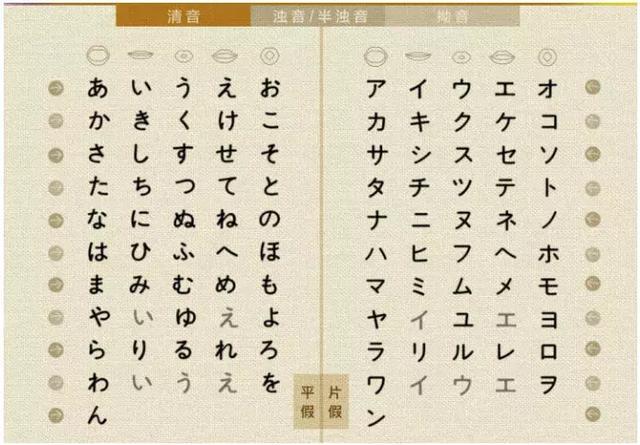 清音 浊音/半浊音 拗音
あ い う え お ア イ ウ エ オ
か き く け こ カ キ ク ケ コ
さ し す せ そ サ シ ス セ ソ
た ち つ て と タ チ ツ テ ト
な に ぬ ね の ナ ニ ヌ ネ ノ
は ひ ふ へ ほ ハ ヒ フ ヘ ホ
ま み む め も マ ミ ム メ モ
や い ゆ え よ ヤ イ ユ エ ヨ
ら り る れ ろ ラ リ ル レ ロ
わ い う え を ワ イ ウ エ ヲ
ん ン
平假 片假